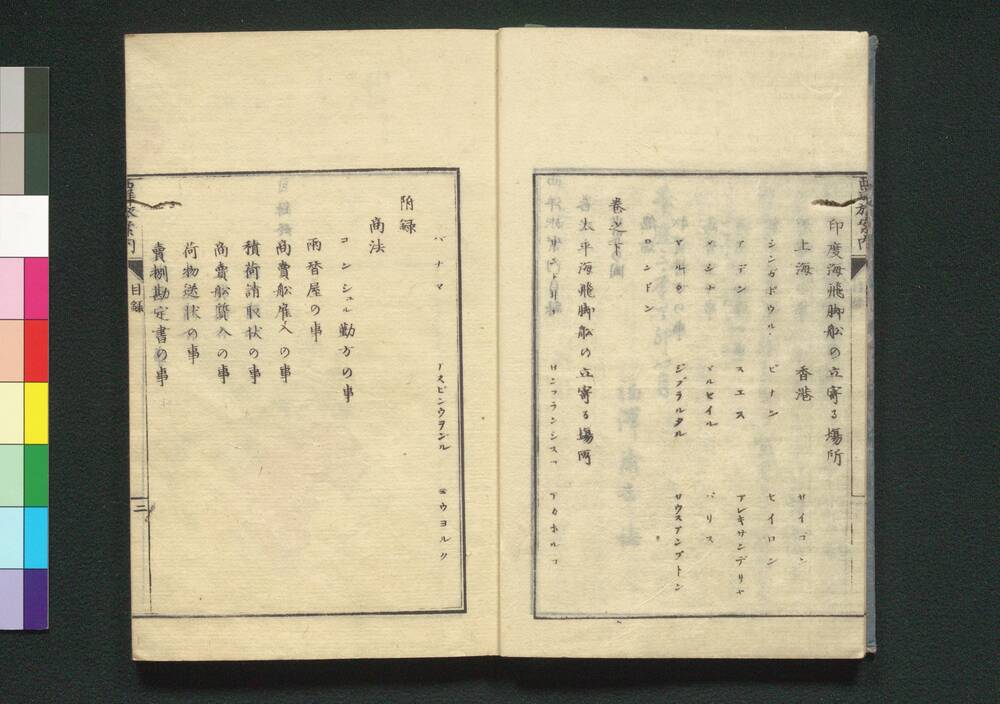 西洋旅案内
目録
印度海飛脚舩の立寄る塲所
上海 香港 サイゴン
シンガポウル ピナン セイロン
アデン スエス アレキサンデリヤ
メシナ マルセイル パリス
マルタ ジブラルタル サウスアンプトン
ロンドン
巻之下
太平海飛脚舩の立寄る塲所
サンフランシスコ アカホルコ
パナマ アスピンウヲール ニウヨルク
附録
商法
コンシュル勤方の事
両替屋の事
商賣舩雇入の事
積荷請取状の事
商賣舩賃入の事
荷物送状の事
賣捌勘定書の事
西洋旅案内
目録
二